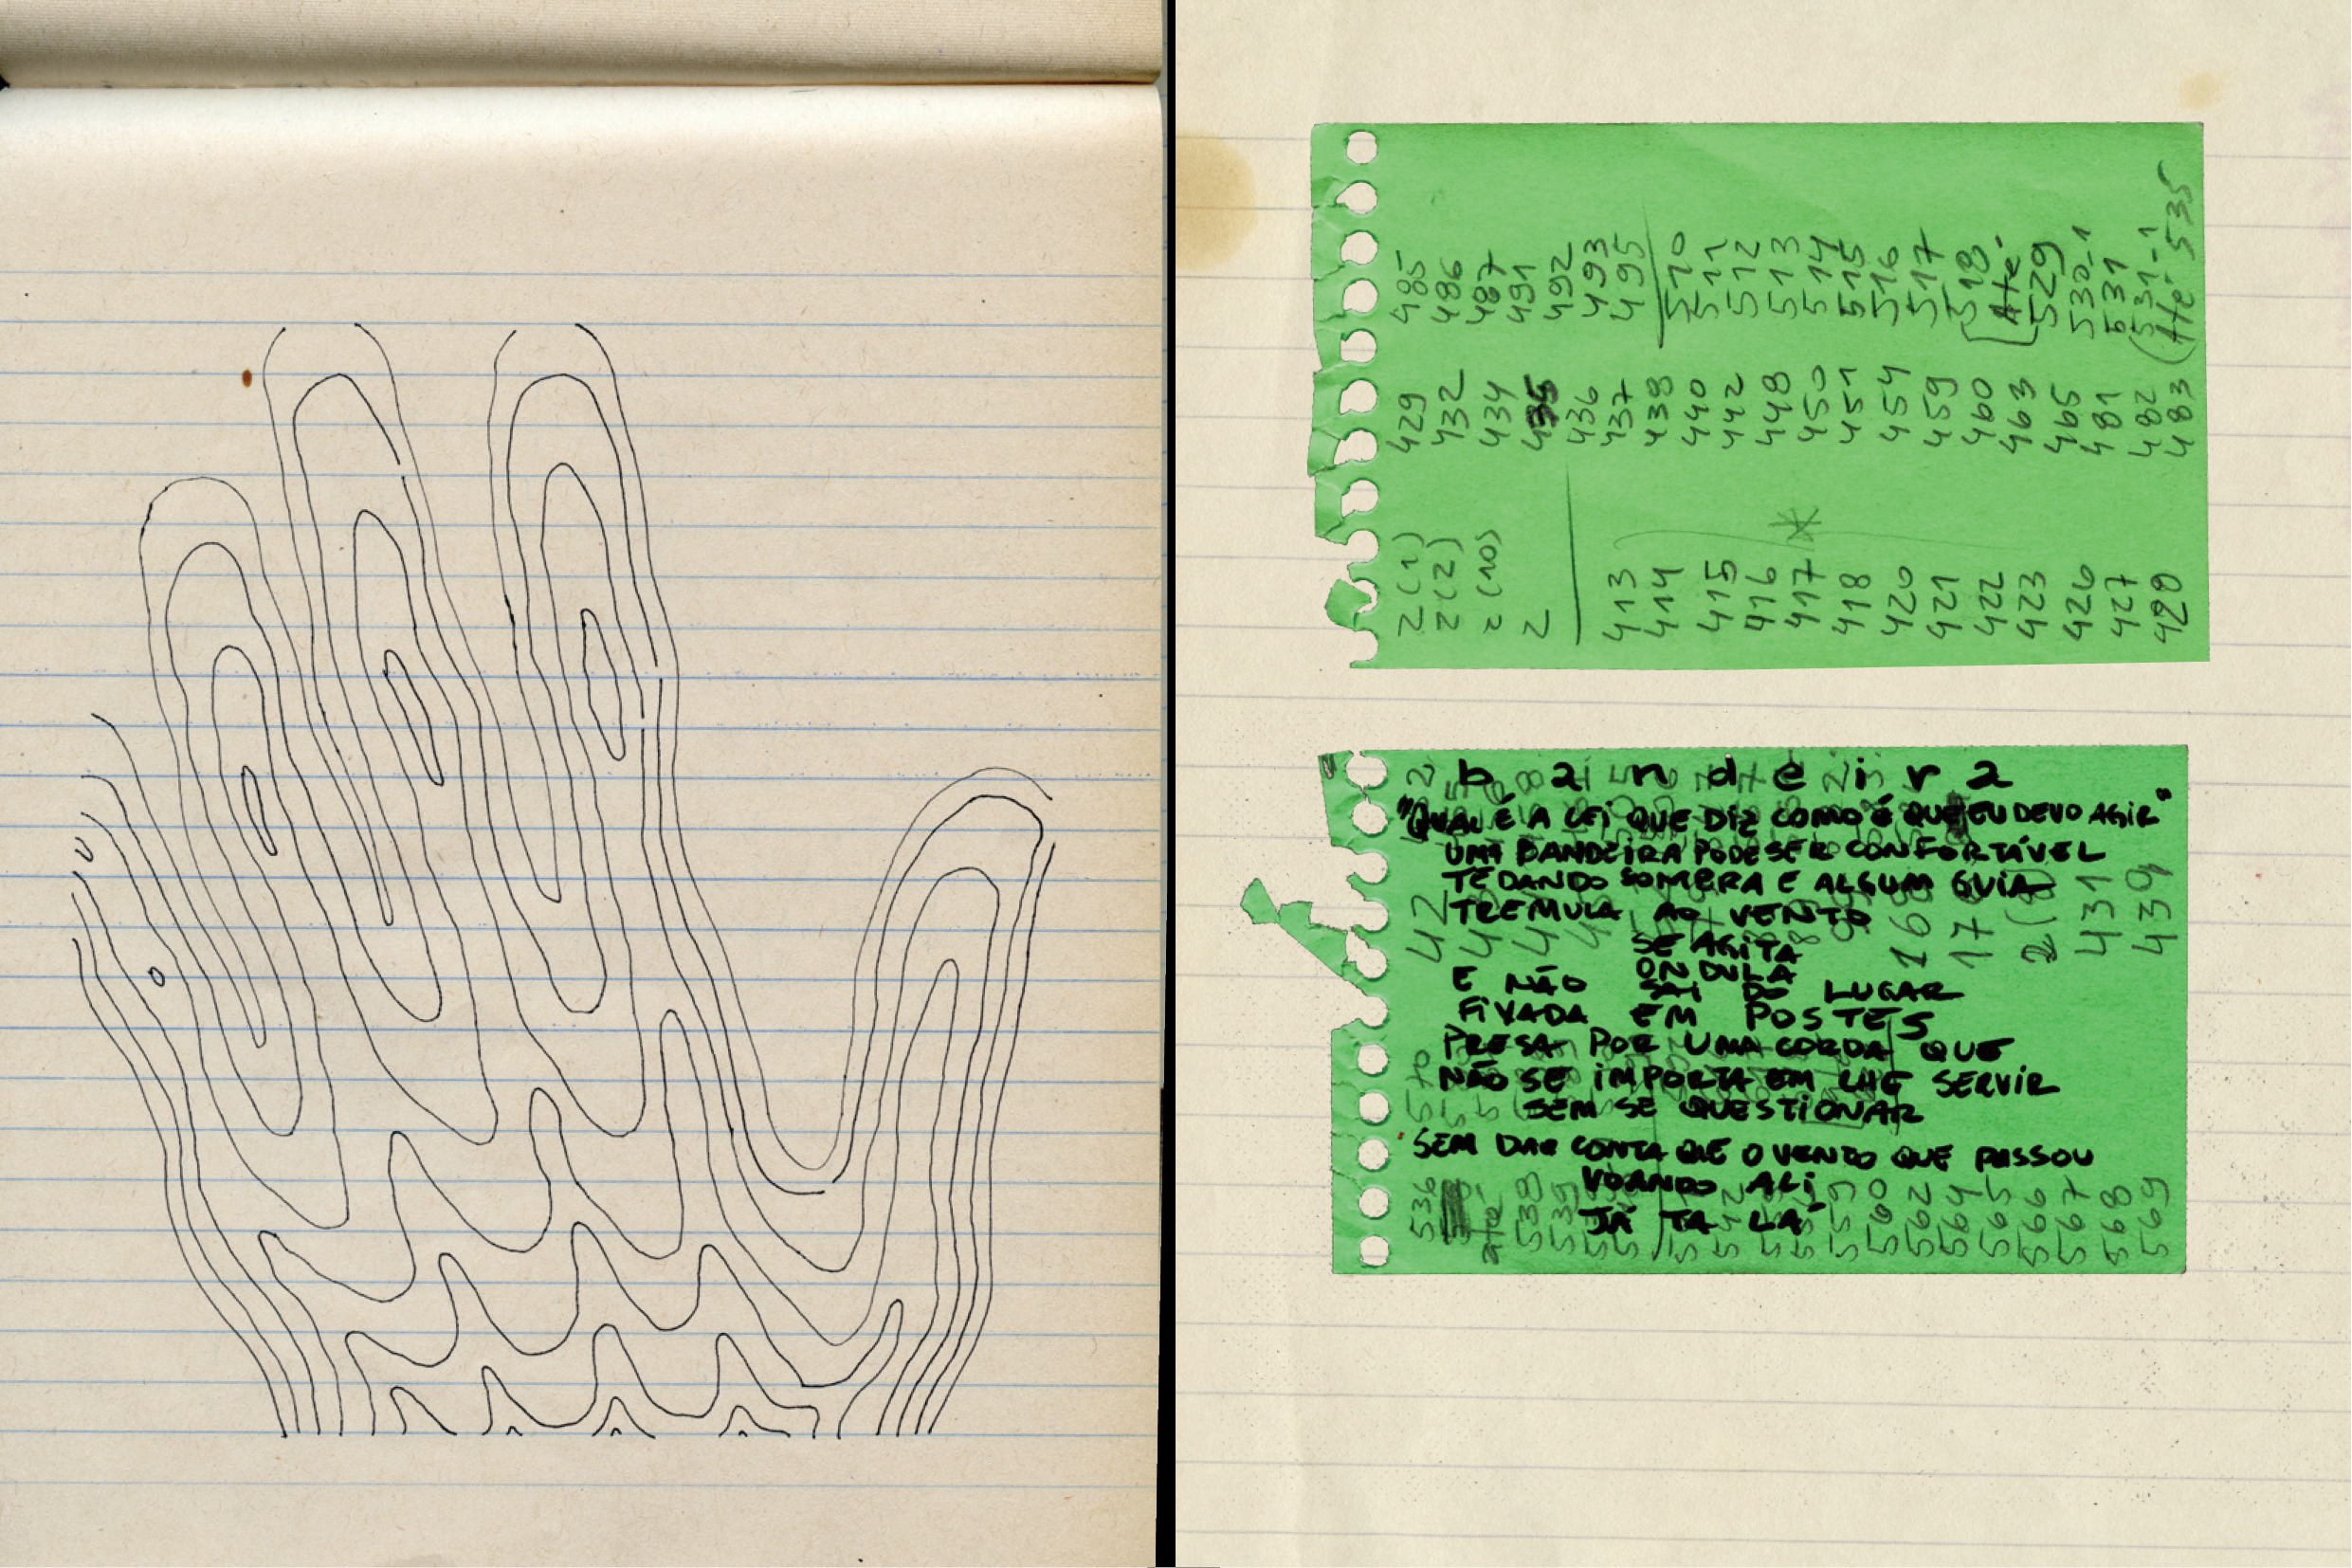 2(1)
2(2)
2(10)
2
413
414
415
416
417
418
420
421
422
423
426
427
428
*
429
432
434
435
436
437
438
440
442
448
450
451
454
459
460
463
465
481
482
483
485
486
487
491
492
493
495
510
511
512
513
514
515
516
517
518
(Até
529
530-1
531
(531-1
(Até 535
bandeira
"QUAL E A LEI QUE DIZ COMO É QUE EU DEVO AGIR"
UMA BANDEIRA PODE SER CONFORTÁVEL
TE DANDO SOMBRA E ALGUM GUIA
TREMULA AO VENTO
SE AGITA
ONDULA
E NÃO SAI DO LUGAR
FIVADA EM POSTES
PRESA POR UMA CORDA QUE
NÃO SE IMPORTA EM LHE SERVIR
SEM SE QUESTIONAR
SEM DAR CONTA QUE O VENTO QUE PASSOU
VOANDO ALI
JÁ TA LÁ
431
439
536
até
538
539
560
562
564
565
566
567
568
569